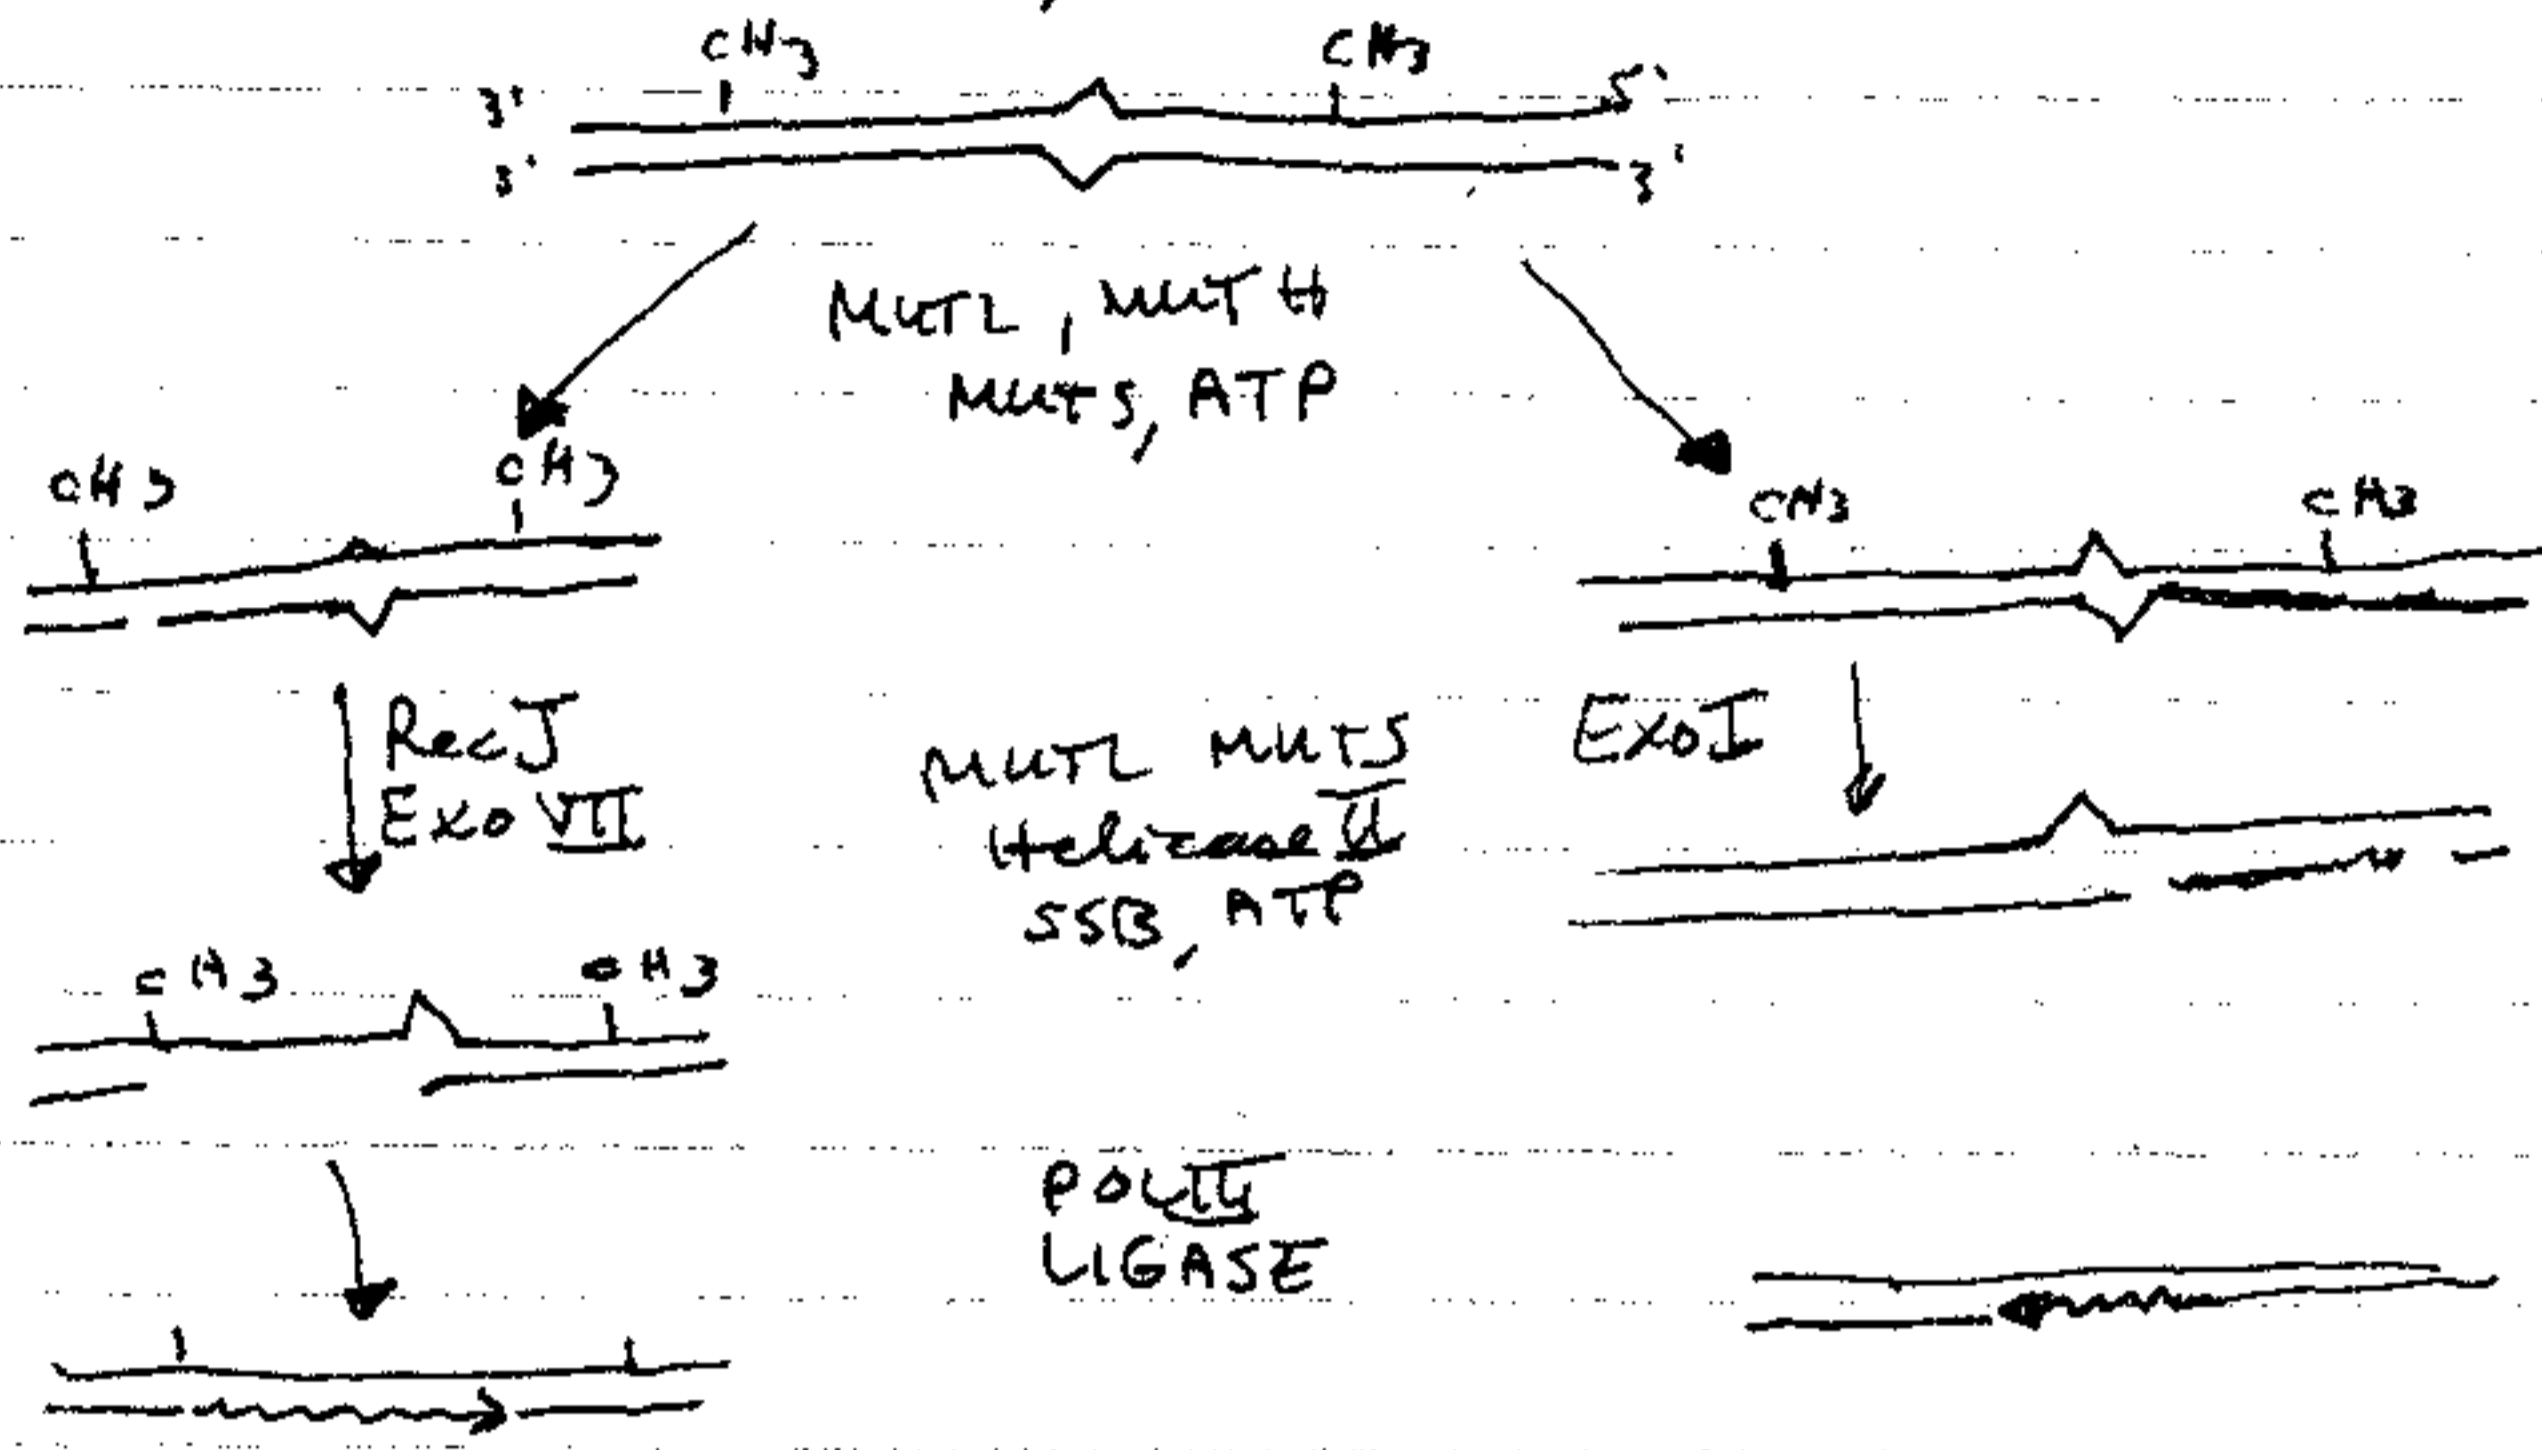 CH3 CH3
3' 5'
3' 3'
MUTL, MUTH
MUTS, ATP
CH3 CH3
CH3 CH3
RecJ
Exo VII
MUTL MUTS
Helicase II
SSB, ATP
ExoI
CH3 CH3
POLIII
LIGASE